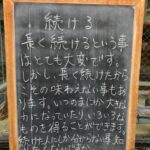 続ける
長く続けるという事
はとても大変です。
しかし、長く続けたから
こその味わえない事もあ
ります。いつのまにか大きな
力になっていたり、いろいろな
ものを得ることができます。
続けた人にしか分からない事